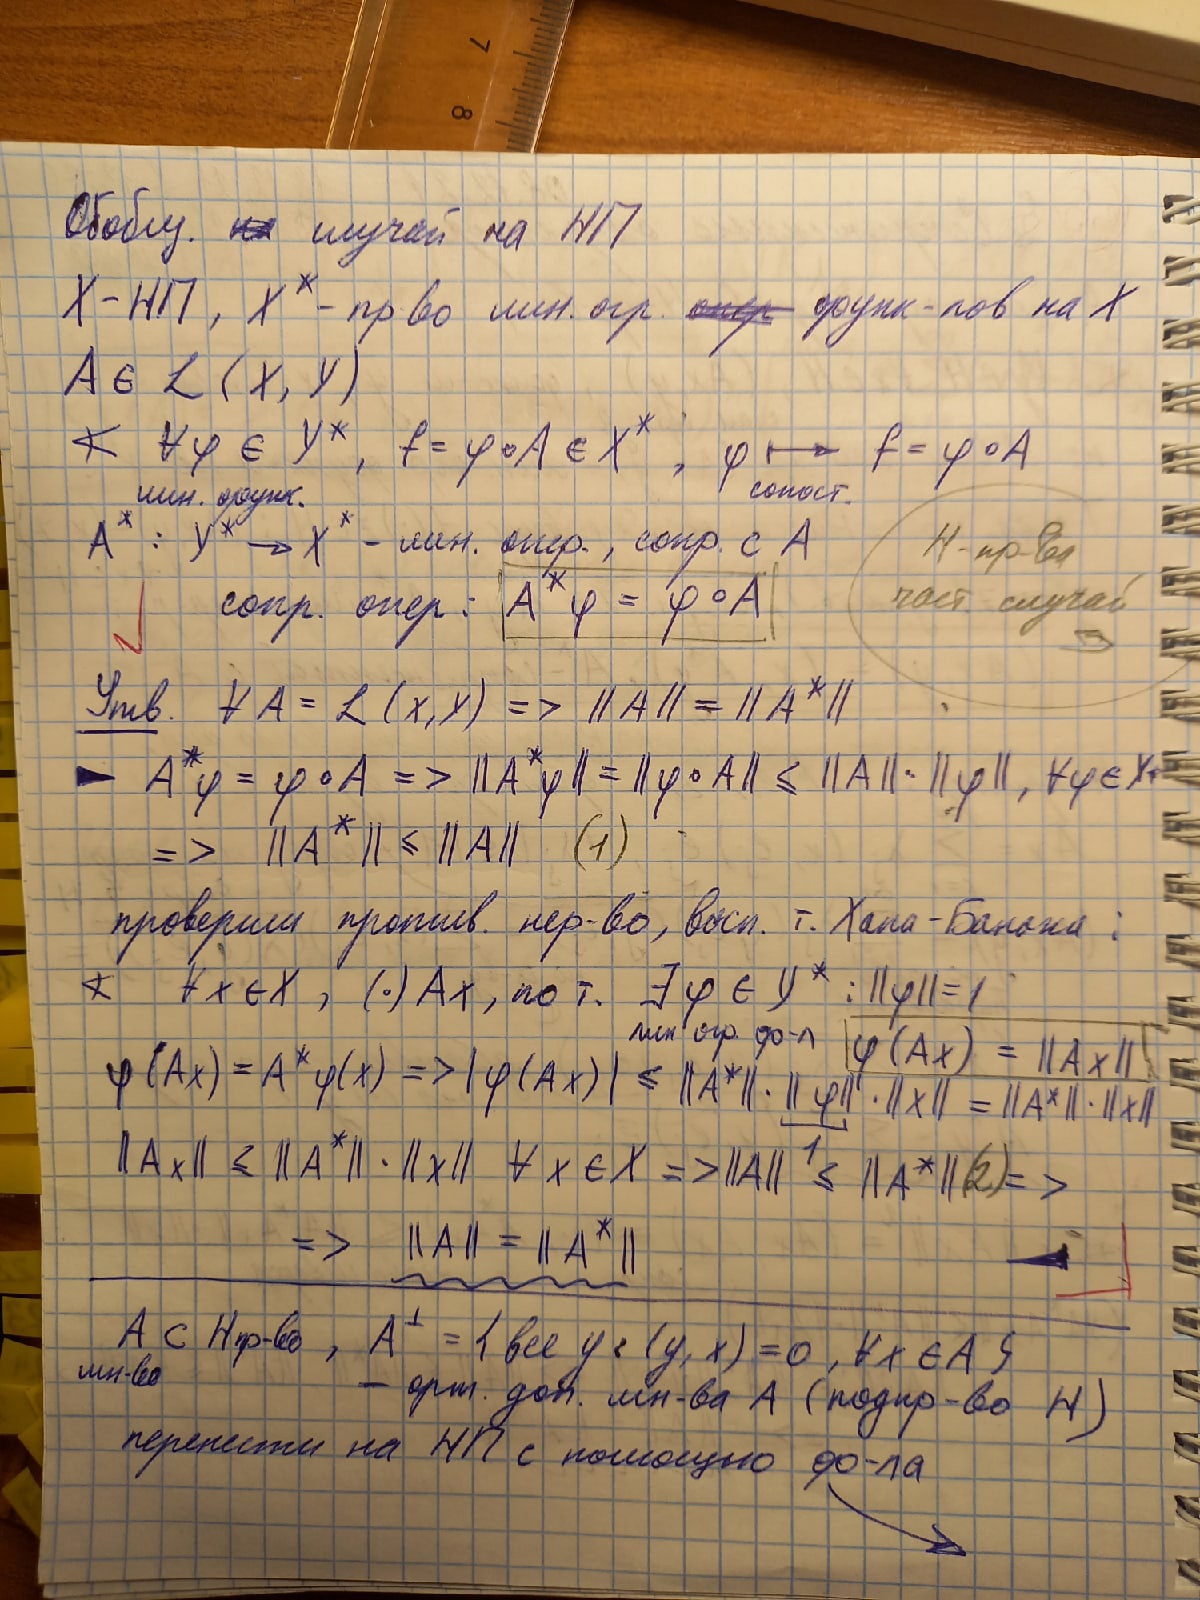 7
8
Обобщ. случай на НП
X - НП, X* - пр-во лин. огр. функ-лов на X
A ∈ L (X, Y)
∢ ∀φ ∈ Y*, f = φ∘A ∈ X*, φ ⟼ f = φ∘A
лин. функ. сопост.
A* : Y* → X* - лин. опер., сопр. с A
H-пр-ва
част случай
сопр. опер: A*φ = φ∘A
Утв. ∀ A = L (X, Y) => ||A|| = ||A*||
► A*φ = φ∘A => ||A*φ|| = ||φ∘A|| ≤ ||A|| · ||φ||, ∀φ ∈ Y*
=> ||A*|| ≤ ||A|| (1)
проверим против. нер-во, восп. т. Хана-Банаха :
∢ ∀x ∈ X, (·) Ax, по т. ∃ φ ∈ Y* : ||φ|| = 1
лин огр. ф-л φ(Ax) = ||Ax||
φ(Ax) = A*φ(x) => |φ(Ax)| ≤ ||A*|| · ||φ|| · ||x|| = ||A*|| · ||x||
1
||Ax|| ≤ ||A*|| · ||x|| ∀ x ∈ X => ||A|| ≤ ||A*|| (2) =>
=> ||A|| = ||A*|| ◄
A ⊂ H пр-во, A⊥ = { все y : (y, x) = 0, ∀x ∈ A }
мн-во - орт. доп. мн-ва A (подпр-во H)
перенести на НП с помощью ф-ла